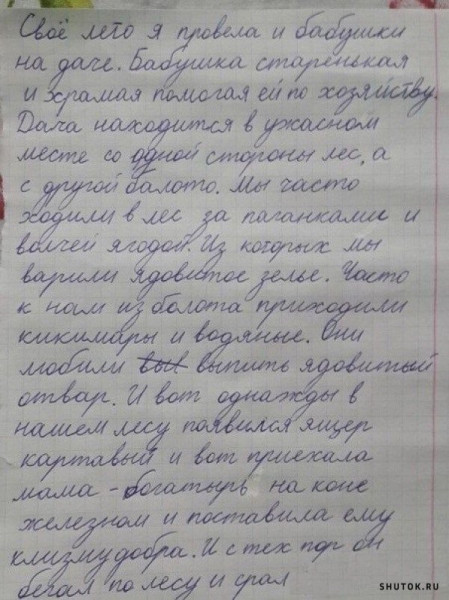 Своё лето я провела и бабушки
на даче. Бабушка старенькая
и храмая помогая ей по хозяйству.
Дача находится в ужасном
месте со одной стороны лес, а
с другой балото. Мы часто
ходили в лес за паганками и
волчей ягодой. Из которых мы
варили ядовитое зелье. Часто
к нам из болота приходили
кикимары и водяные. Они
любили выпить ядовитый
отвар. И вот однажды в
нашем лесу появился ящер
картавый и вот приехала
мама - богатырь на коне
железном и поставила ему
клизму добра. И с тех пор он
бегал по лесу и срал
SHUTOK.RU